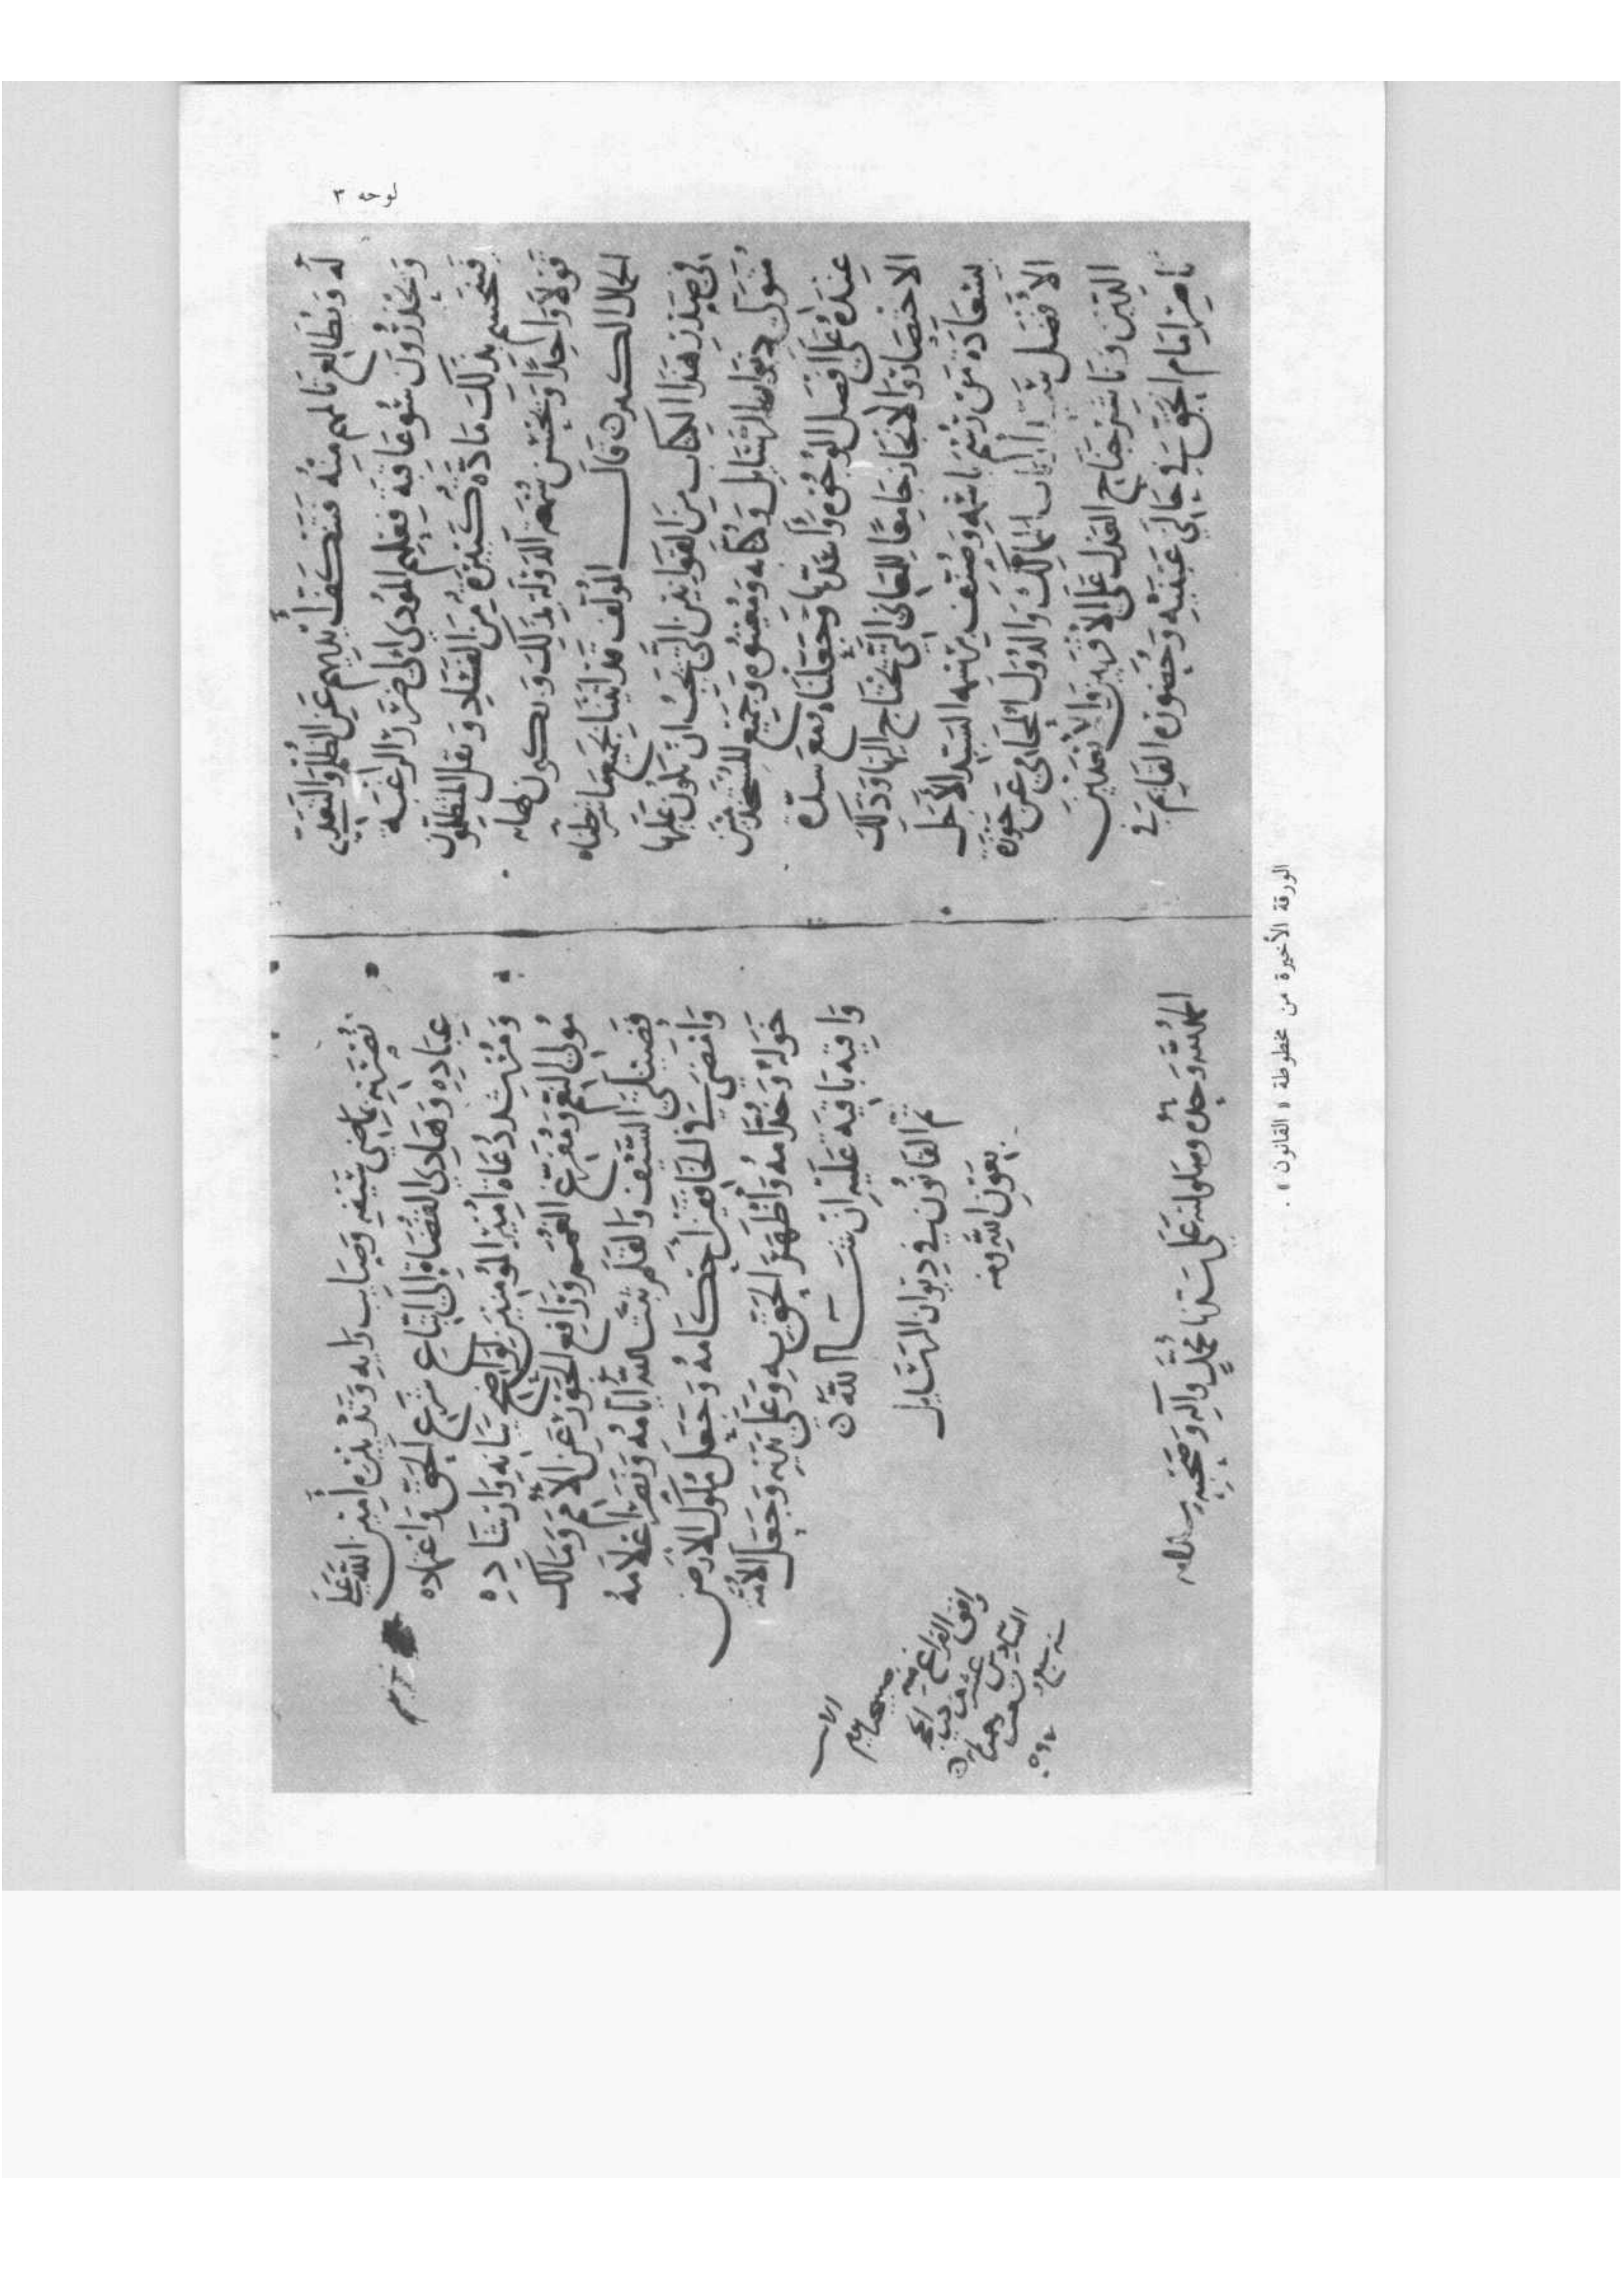 لوحه ٣
له ويطالع بما لهم منه فتكف أيديهم عن الظلم والتعدي
ويحذرون سوء عاقبة فعلهم المؤدي إلى ضرر الرعية
فتنحسم بذلك مادة كبيرة من الفساد ويقل المتظلمون
قولا واحدا ويحسن سمعة الدولة بذلك ويكون لها به
الجمال الكبير ۞ قال المؤلف قد أتينا بجميع ما شرطناه
في صدر هذا الكتاب من القوانين التي يجب أن يكون عليها
متولي ديوان الرسايل وكتابه ومعينوه وجميع المستخدمين
عنده على أفضل الوجوه وأعدلها وجعلناه مع شدة
الاختصار والإيجاز جامعا للمعاني التي تحتاج إليها وذلك
بسعادة من رسم باسمه وصنف برسمه السيد الأجل
الأفضل سيد أرباب الممالك والدول المحامي عن حوزة
الدين وناشر جناح العدل على الأقربين والأبعدين
ناصر إمام الحق في حالي غيبته وحضوره القايم في
نصرته بماضي سيفه وصايب رأيه وتدبيره أمين الله على
عباده وهادي القضاة إلى اتباع شرع الحق واعتماده
ومرشد دعاة أمير المؤمنين بواضح بيانه وإرشاده
مولي النعم ومفرج الغمم ورافع الجور عن الأمم ومالك
فضيلتي السيف والقلم ثبت الله أيامه ونصر أعلامه
وأمضى في الخافقين أحكامه وجعل ملوك الأرض
خوله وخدامه وأظهر الحق به وعلى يديه وجعل الأمة
واقية باقية عليه إن شـــــا الله ۞
تم القانون في ديوان الرسايل
بعون الله ومنه
الحمد لله وحده وصلواته على سيدنا محمد وآله وصحبه وسلامه
وافق الفراغ منه
الورقة الأخيرة من مخطوطة « القانون » .